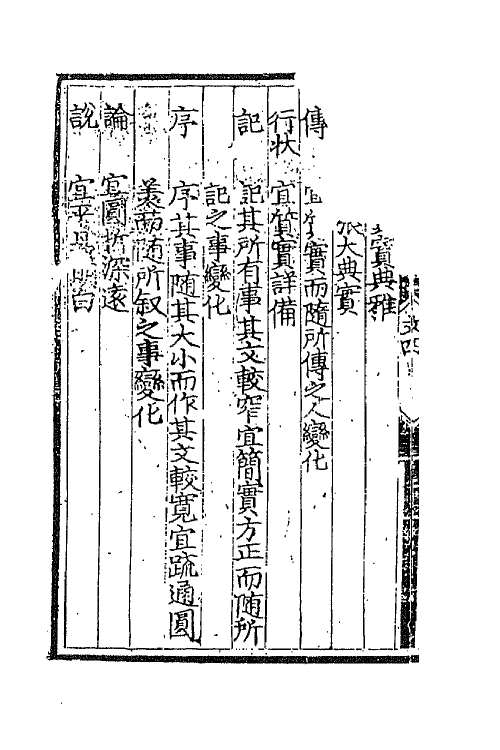 實典雅
大典實
傳 實而隨所傳之人變化
行狀 宜質實詳備
記 記其所有事其文較窄宜簡實方正而随所
記之事變化
序 序其事随其大小而作其文較寬宜疏通圓
美而随所叙之事變化
論 宜圓折深遠
說 宜平 白